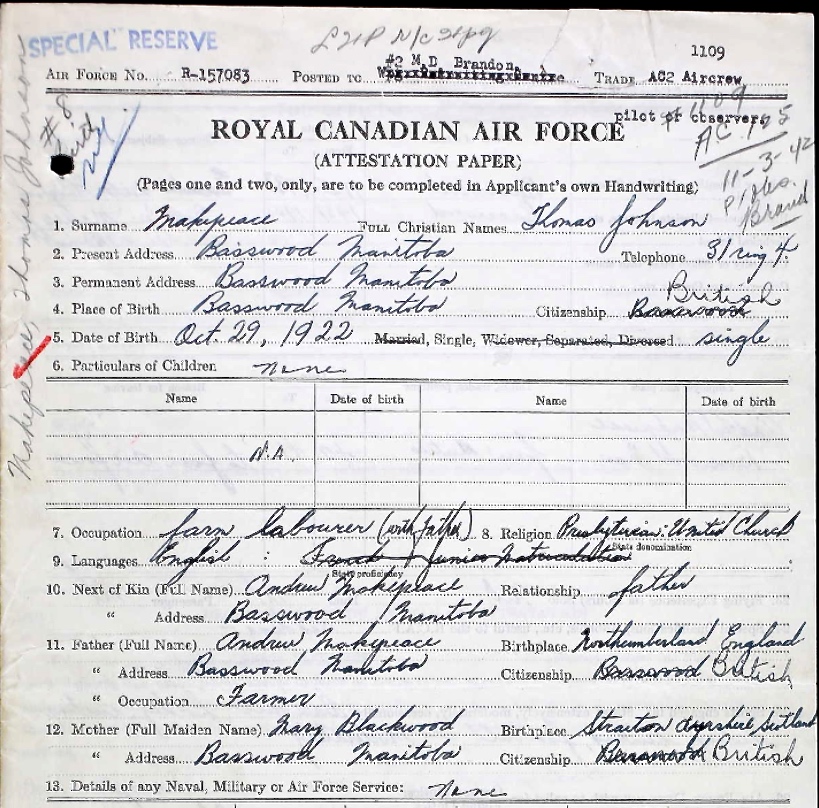 SPECIAL RESERVE
1109
#2 M.D Brandon,
AIR FORCE No. R-157083 POSTED TO TRADE AC2 Aircrew
pilot or observer,
#8
ROYAL CANADIAN AIR FORCE
AC. 175
(ATTESTATION PAPER)
11-3-42
(Pages one and two, only, are to be completed in Applicant's own Handwriting)
Brand
Makepeace, Thomas Johnson
1. Surname Makepeace FULL Christian Names Thomas Johnson
2. Present Address Basswood Manitoba Telephone 31 ring 4.
3. Permanent Address Basswood Manitoba
4. Place of Birth Basswood Manitoba Citizenship Basswood British
5. Date of Birth Oct. 29, 1922 Married, Single, Widower, Separated, Divorced single
6. Particulars of Children none
Name Date of birth Name Date of birth
N.A.
7. Occupation farm labourer (with father) 8. Religion Presbyterian: United Church
State denomination
9. Languages English : French Junior Matriculation
State proficiency
10. Next of Kin (Full Name) Andrew Makepeace Relationship father
" Address Basswood Manitoba
11. Father (Full Name) Andrew Makepeace Birthplace Northumberland England
" Address Basswood Manitoba Citizenship Basswood British
" Occupation Farmer
12. Mother (Full Maiden Name) Mary Blackwood Birthplace Straiton Ayrshire Scotland
" Address Basswood Manitoba Citizenship Basswood British
13. Details of any Naval, Military or Air Force Service: None